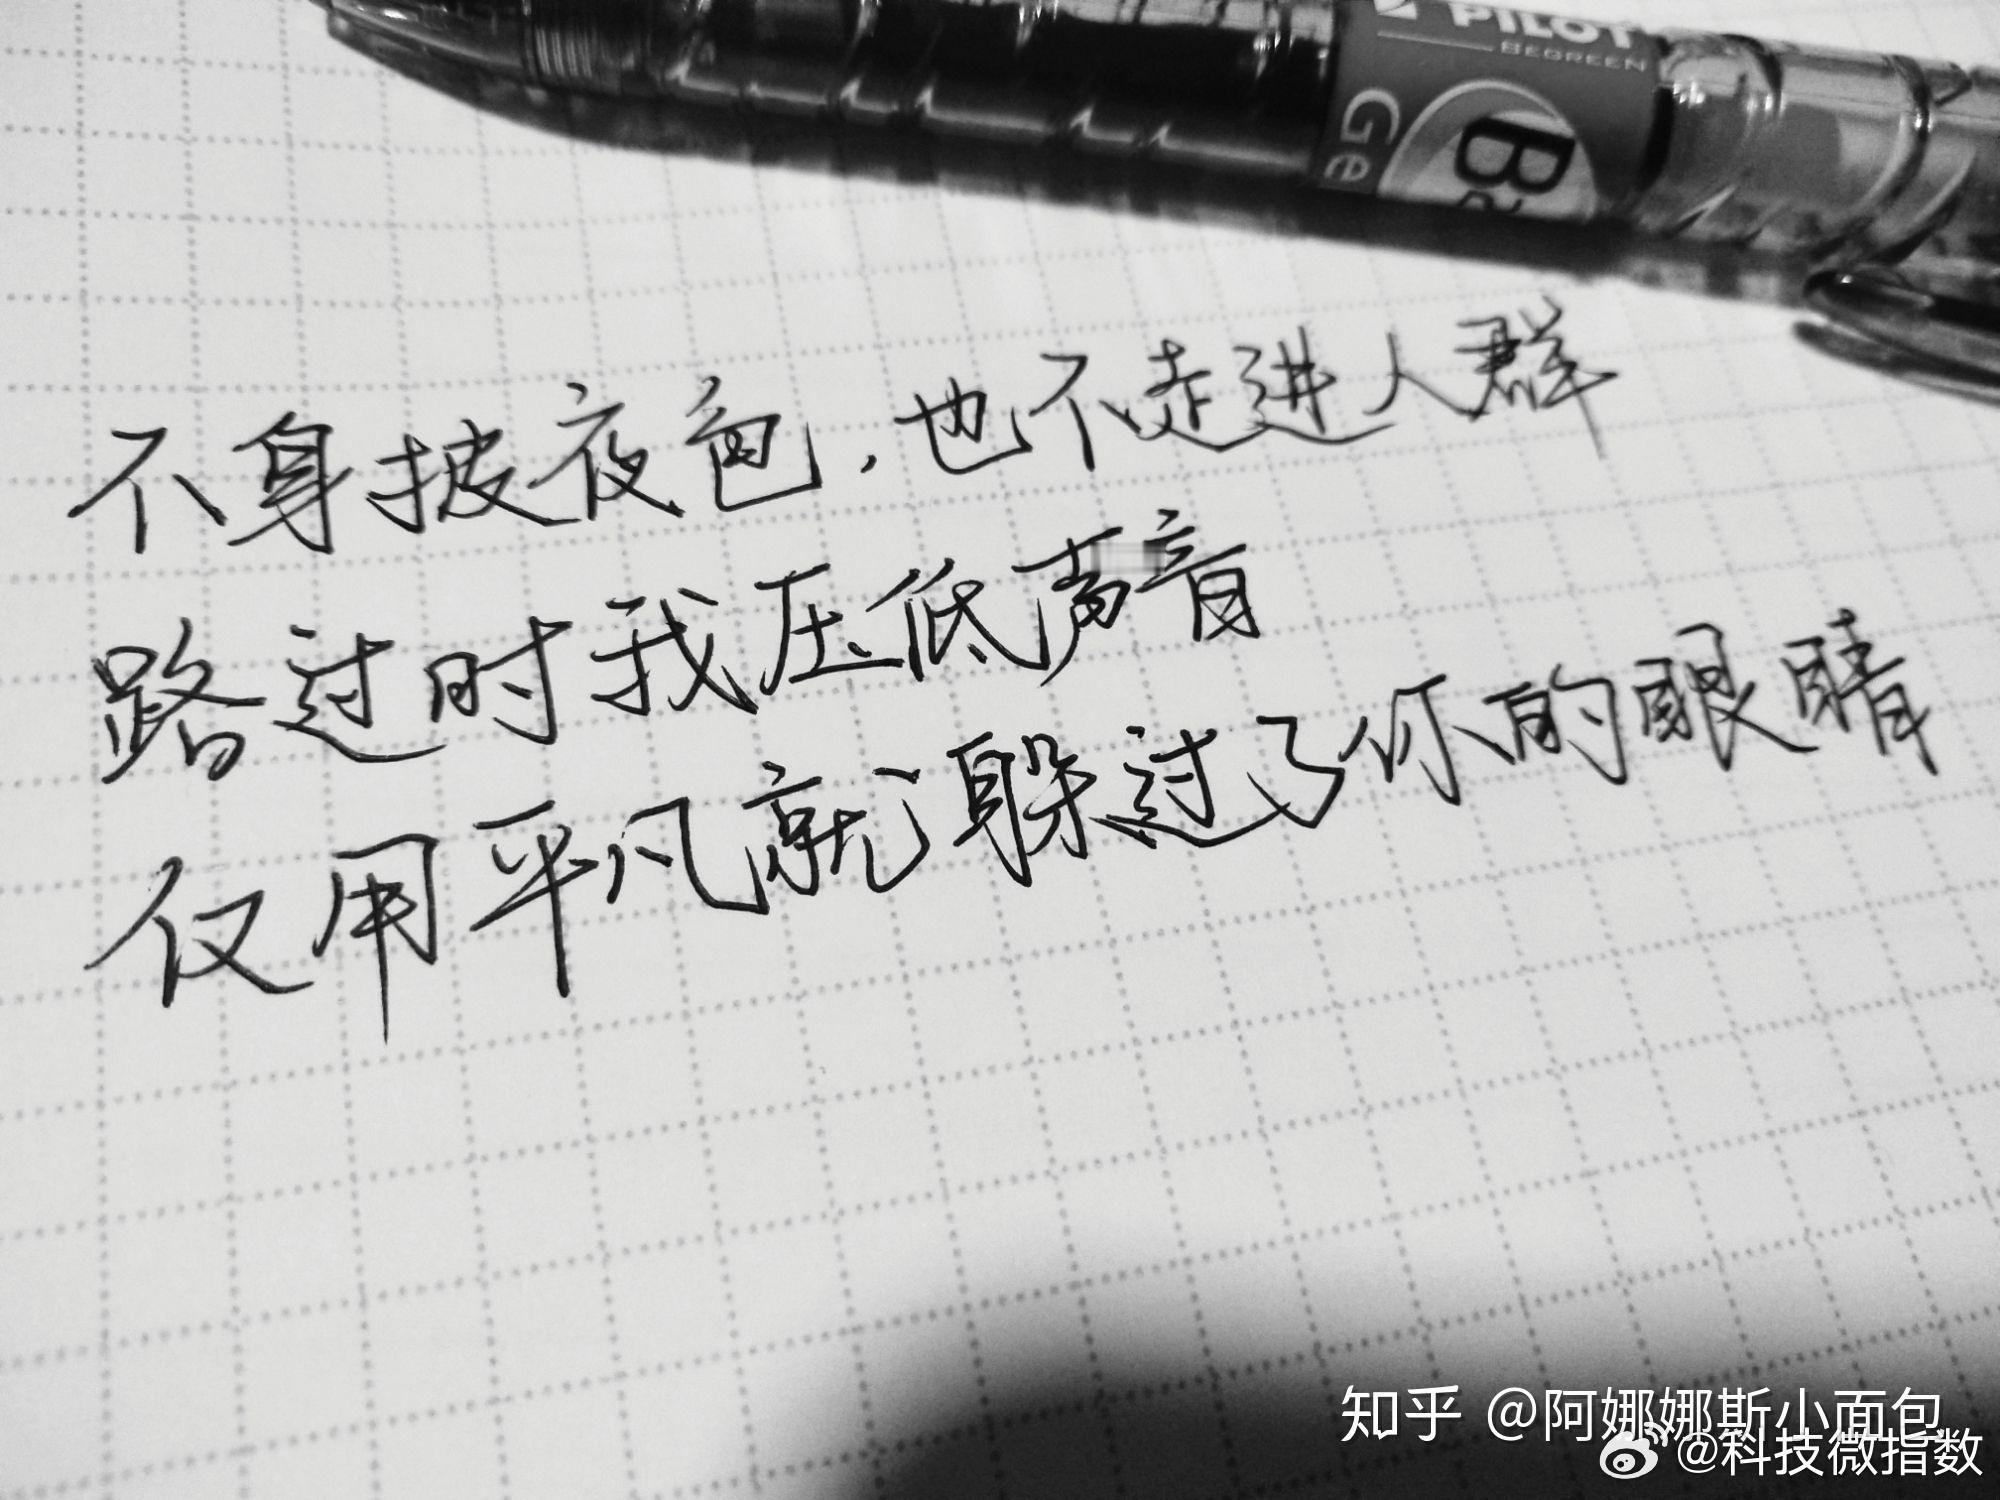 PILOT
BEGREEN
Ge
Ba
不身披夜色，也不走进人群
路过时我压低声音
仅用平凡就躲过了你的眼睛
知乎 @阿娜娜斯小面包
@科技微指数